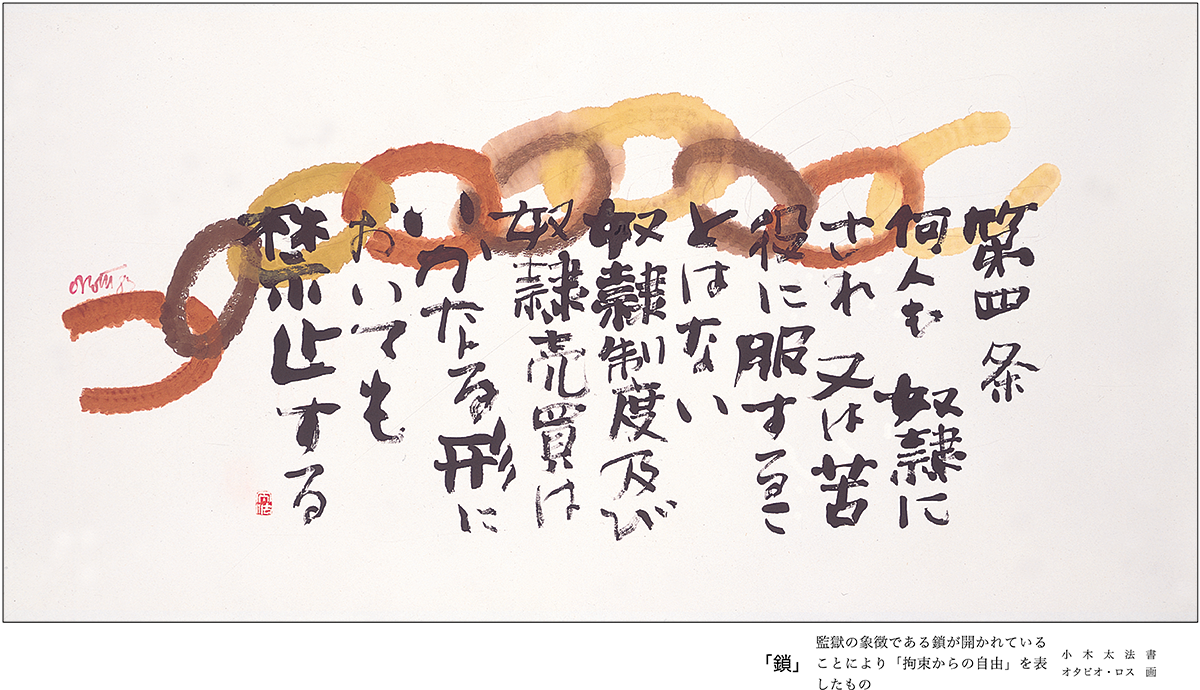 第四条
何人も 奴隷に
され 又は苦
役に服するこ
とはない
奴隷制度及び
奴隷売買は
いかなる形に
おいても
禁止する
「鎖」
監獄の象徴である鎖が開かれている
ことにより「拘束からの自由」を表
したもの
小木太法 書
オタビオ・ロス 画